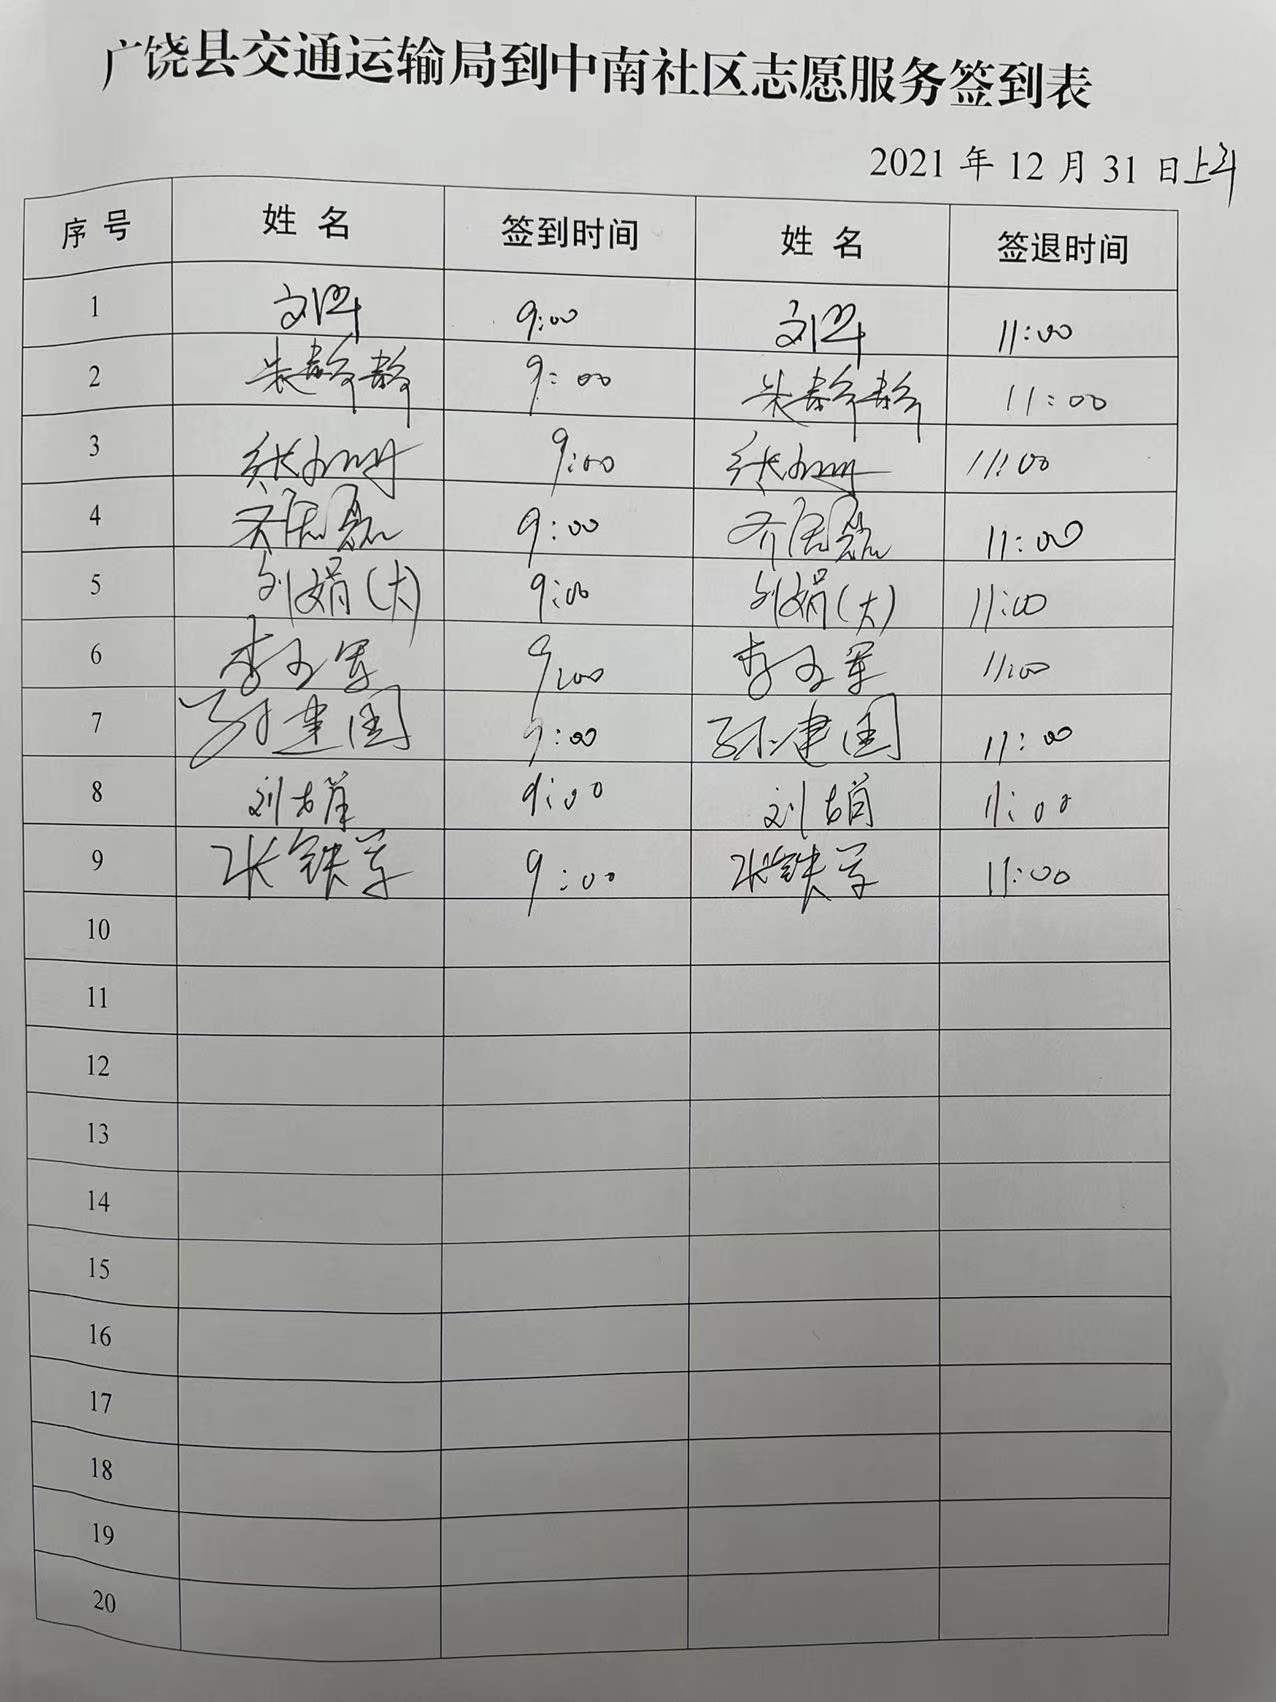 广饶县交通运输局到中南社区志愿服务签到表
2021 年 12 月 31 日上午
序号 姓名 签到时间 姓名 签退时间
1 9:00 11:00
2 朱静静 9:00 朱静静 11:00
3 张 9:00 张 11:00
4 齐 9:00 齐 11:00
5 刘娟(大) 9:00 刘娟(大) 11:00
6 李玉军 9:00 李玉军 11:00
7 孙建国 9:00 孙建国 11:00
8 刘 9:00 刘 11:00
9 张铁军 9:00 张铁军 11:00
10
11
12
13
14
15
16
17
18
19
20